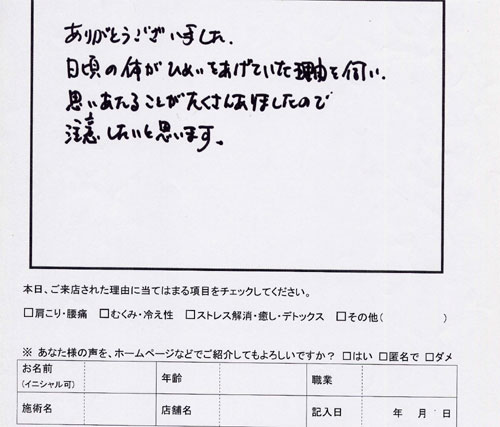 ありがとうございました.
日頃の体がひめいをあげていた理由を伺い.
思いあたることがたくさんありましたので
注意したいと思います。
本日、ご来店された理由に当てはまる項目をチェックしてください。
□肩こり・腰痛 □むくみ・冷え性 □ストレス解消・癒し・デトックス □その他( )
※ あなた様の声を、ホームページなどでご紹介してもよろしいですか? □はい □匿名で □ダメ
お名前 (イニシャル可) 年齢 職業
施術名 店舗名 記入日 年 月 日